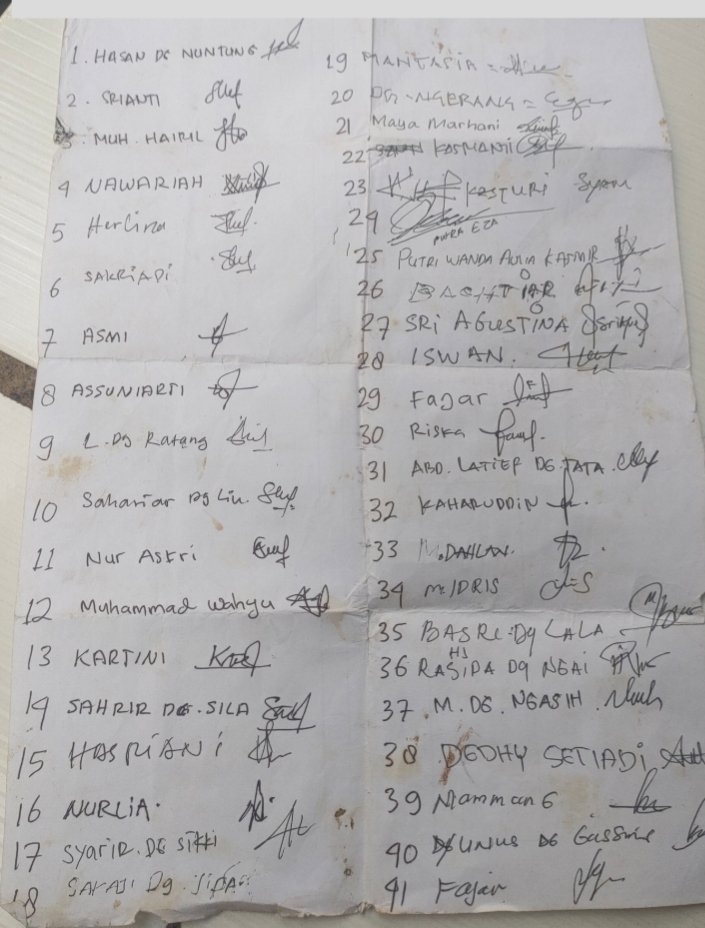 1. HASAN DG NUNTUNG
2. SRIANTI
3. MUH. HAIRIL
4 NAWARIAH
5 Herlina
6 SAKRiADi
7 ASMI
8 ASSUNIARTI
9 L. Dg Ratang
10 Sahariar Dg Liu.
11 Nur Astri
12 Muhammad Wahyu
13 KARTINI
14 SAHRIR DG. SILA
15 HASRIANi
16 NURLIA.
17 SYARIR. DG SiKKi
18 Dg.
19 MANTASIA =
20 DG. NGERANG =
21 Maya Marhani
22 KASMANTI
23 KASTURI Syam
24 PUTRA EZA
25 PUTRI WANDA AULIA KASMIR
26 BACHTIAR
27 SRI AGUSTINA
28 ISWAN.
29 FAJAR
30 RiSKA
31 ABD. LATIEF DG. TATA.
32 KAHARUDDIN
33 M. DAHLAN.
34 M. IDRIS
35 BASRI. Dg LALA
36 HJ RASIDA Dg NGAI
37 M. DG. NGASIH.
38 DEDHY SETIADI
39 MammanG
40 YUNUS DG GaSSing
41 Fajar